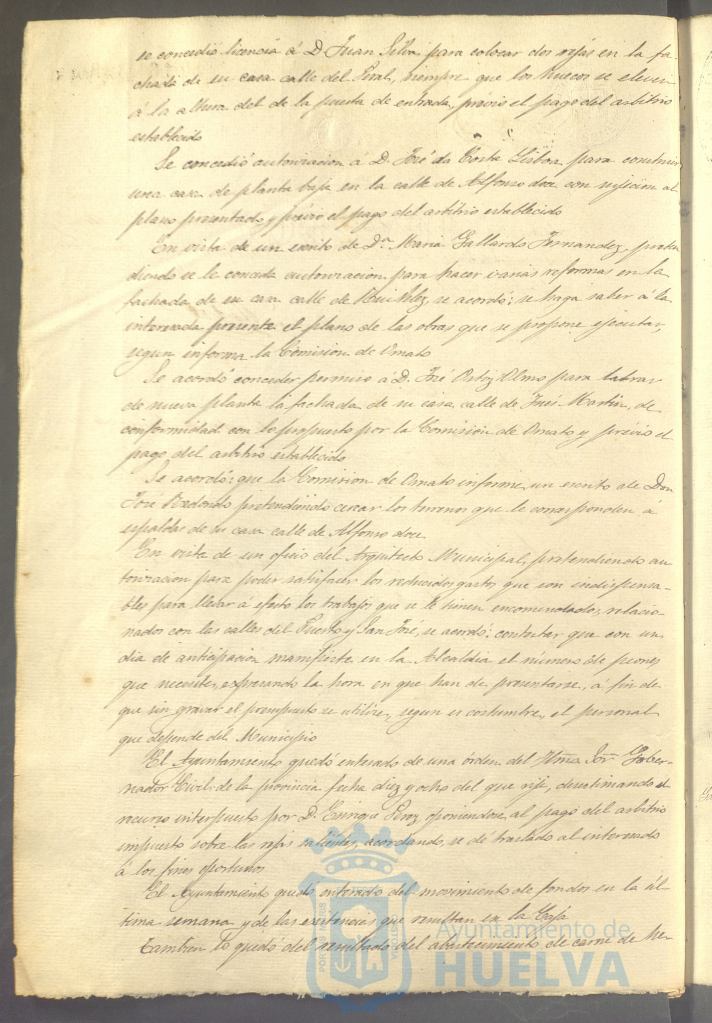 se concedió licencia á D Juan Silva para colocar dos rejas en la fa-
chada de su casa calle del Peral, siempre que los huecos se eleven
á la altura del de la puerta de entrada, previo el pago del arbitrio
establecido
Se concedió autorizacion á D. José da Costa Lisboa para construir
una casa de planta baja en la calle de Alfonso doce con sujecion al
plano presentado y previo el pago del arbitrio establecido
En vista de un escrito de Dª Maria Gallardo Fernandez, preten
diendo se le conceda autorizacion para hacer varias reformas en la
fachada de su casa calle de Rui Velez, se acordó: se haga saber á la
interesada presente el plano de las obras que se propone ejecutar,
segun informa la Comision de Ornato
Se acordó conceder permiso á D. José Ortiz Olmo para labrar
de nueva planta la fachada de su casa calle de Fray Martin, de
conformidad con lo propuesto por la Comision de Ornato y previo el
pago del arbitrio establecido
Se acordó: que la Comision de Ornato informe, un escrito de Don
José Redondo pretendiendo cercar los terrenos que le corresponden á
espaldas de su casa calle de Alfonso doce.
En vista de un oficio del Arquitecto Municipal, pretendiendo au
torizacion para poder satisfacer los reducidos gastos que son indispensa-
bles para llevar á efecto los trabajos que se le tienen encomendados, relacio-
nados con las calles del Puerto y San José, se acordó: contestar que con un
dia de anticipacion manifieste en la Alcaldia el número de peones
que necesite, expresando la hora en que han de presentarse, á fin de
que sin gravar el presupuesto se utilize, segun es costumbre, el personal
que depende del Municipio
El Ayuntamiento quedó enterado de una órden del Iltmo Sor Gober-
nador Civil de la provincia fecha diez y ocho del que rije, desestimando el
recurso interpuesto por D. Enrique Perez oponiendose, al pago del arbitrio
impuesto sobre las rejas salientes, acordando, se dé traslado al interesado
á los fines oportunos
El Ayuntamiento quedó enterado del movimiento de fondos en la úl-
tima semana y de las existencias que resultan en la Caja
Tambien lo quedó del resultado del abastecimiento de carne de He-
Ayuntamiento de
HUELVA